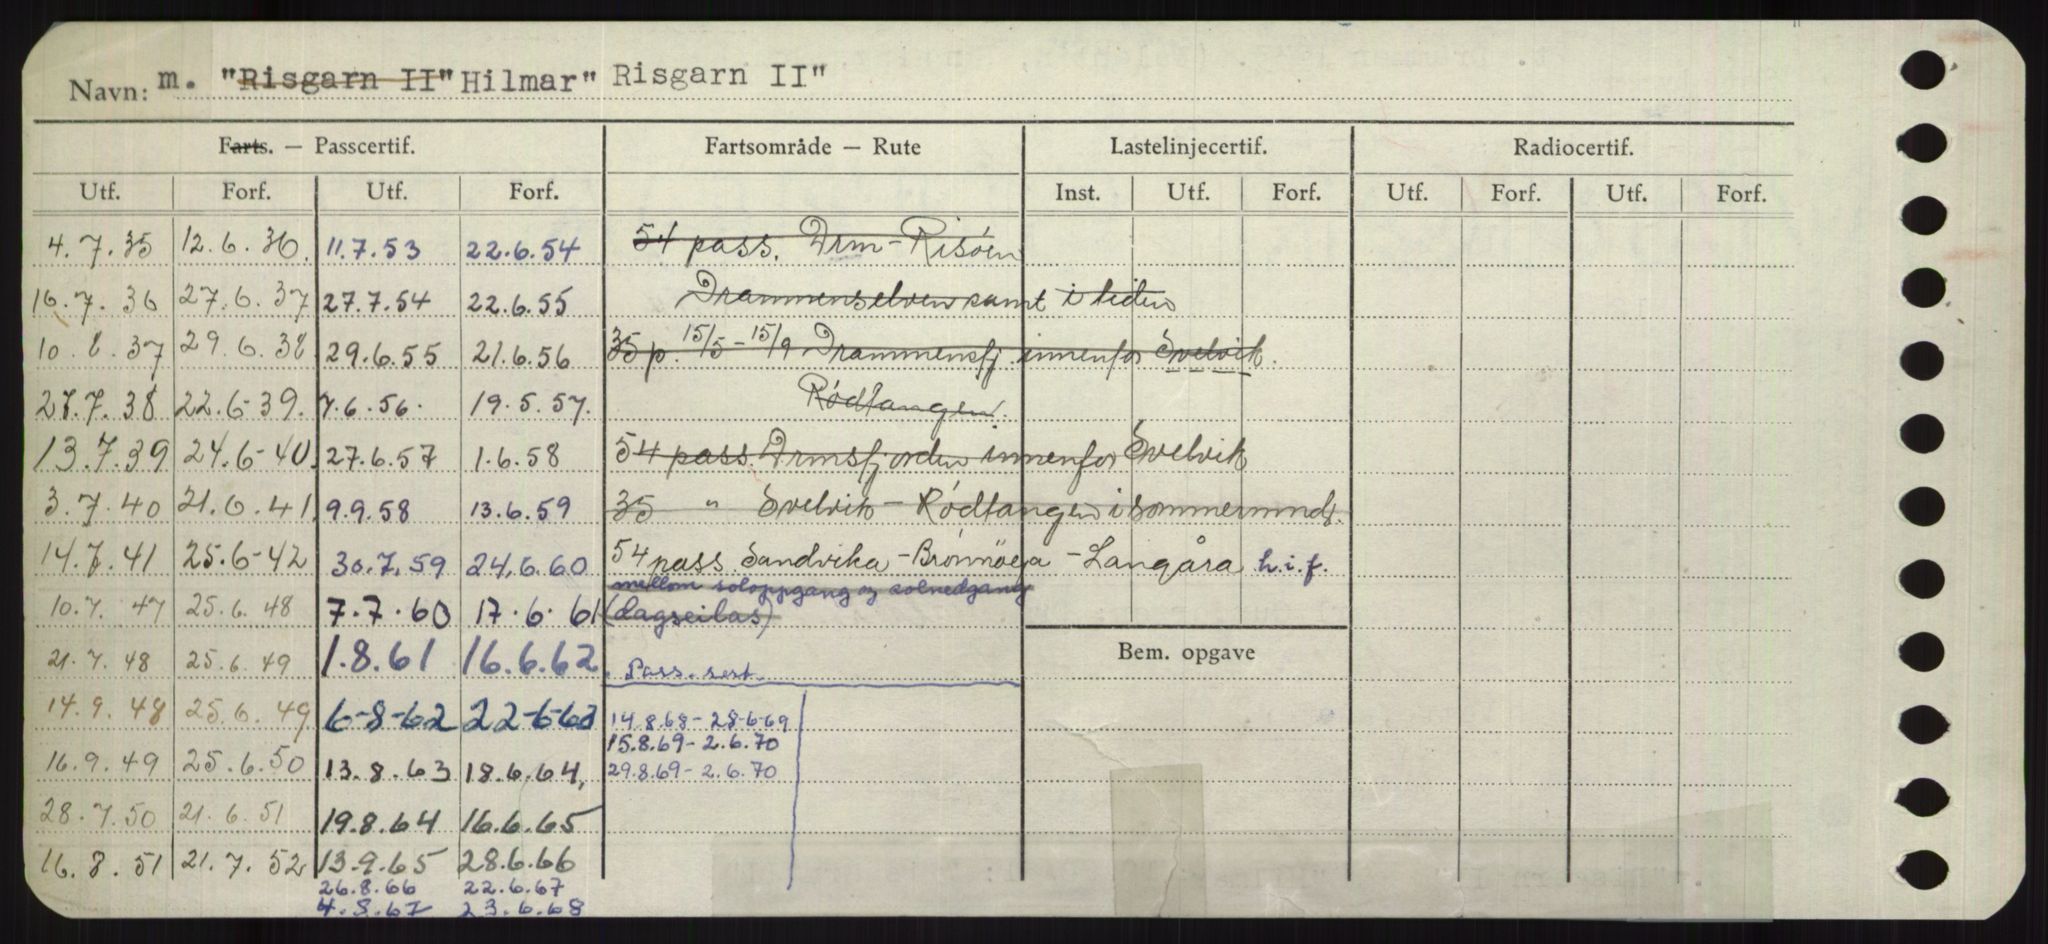 Navn: m. "Risgarn II" Hilmar" Risgarn II"
Farts. — Passcertif. Fartsområde — Rute Lastelinjecertif. Radiocertif.
Utf. Forf. Utf. Forf. Inst. Utf. Forf. Utf. Forf. Utf. Forf.
4.7.35 12.6.36. 11.7.53 22.6.54 54 pass. Drm - Risöen
16.7.36 27.6.37 27.7.54 22.6.55 Drammenselven samt i leden
10.8.37 29.6.38. 29.6.55 21.6.56 35 p. 15/5 - 15/9 Drammensfj. innenfor Svelvik.
27.7.38 22.6-39. 7.6.56. 19.5.57. Rødtangen.
13.7.39 24.6-40. 27.6.57 1.6.58 54 pass. Drmsfjorden innenfor Svelvik
3.7.40 21.6.41. 9.9.58 13.6.59 35 " Svelvik - Rødtangen i sommermnd.
14.7.41 25.6-42 30.7.59 24.6.60 54 pass. Sandvika - Brönnöya - Langåra h.i.f.
mellom soloppgang og solnedgang
10.7.47 25.6.48 7.7.60 17.6.61 (dagseilas)
21.7.48 25.6.49 1.8.61 16.6.62 Pass. sert. Bem. opgave
14.9.48 25.6.49 6-8-62 22-6-63 14.8.68 - 28-6-69
15.8.69 - 2.6.70
16.9.49 25.6.50 13.8.63 18.6.64, 29.8.69 - 2.6.70
28.7.50 21.6.51 19.8.64 16.6.65
16.8.51 21.7.52 13.9.65 28.6.66
26.8.66 22.6.67
4.8.67 23.6.68